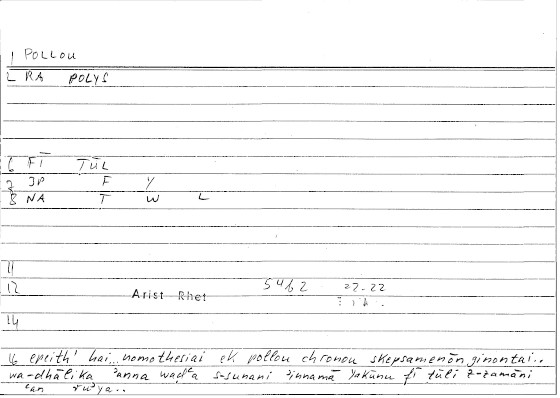 1 POLLOU
2 RA POLYS
6 FĪ TŪL
7 JP F Y
8 NA T W L
11
12 Arist Rhet 54b2 22.22
14
16 epeith' hai...nomothesiai ek pollou chronou skepsamenōn ginontai..
wa-dhālika ʾanna waḍʿa s-sunani ʾinnamā yakūnu fī ṭūli z-zamāni
ʿan ruʾya..